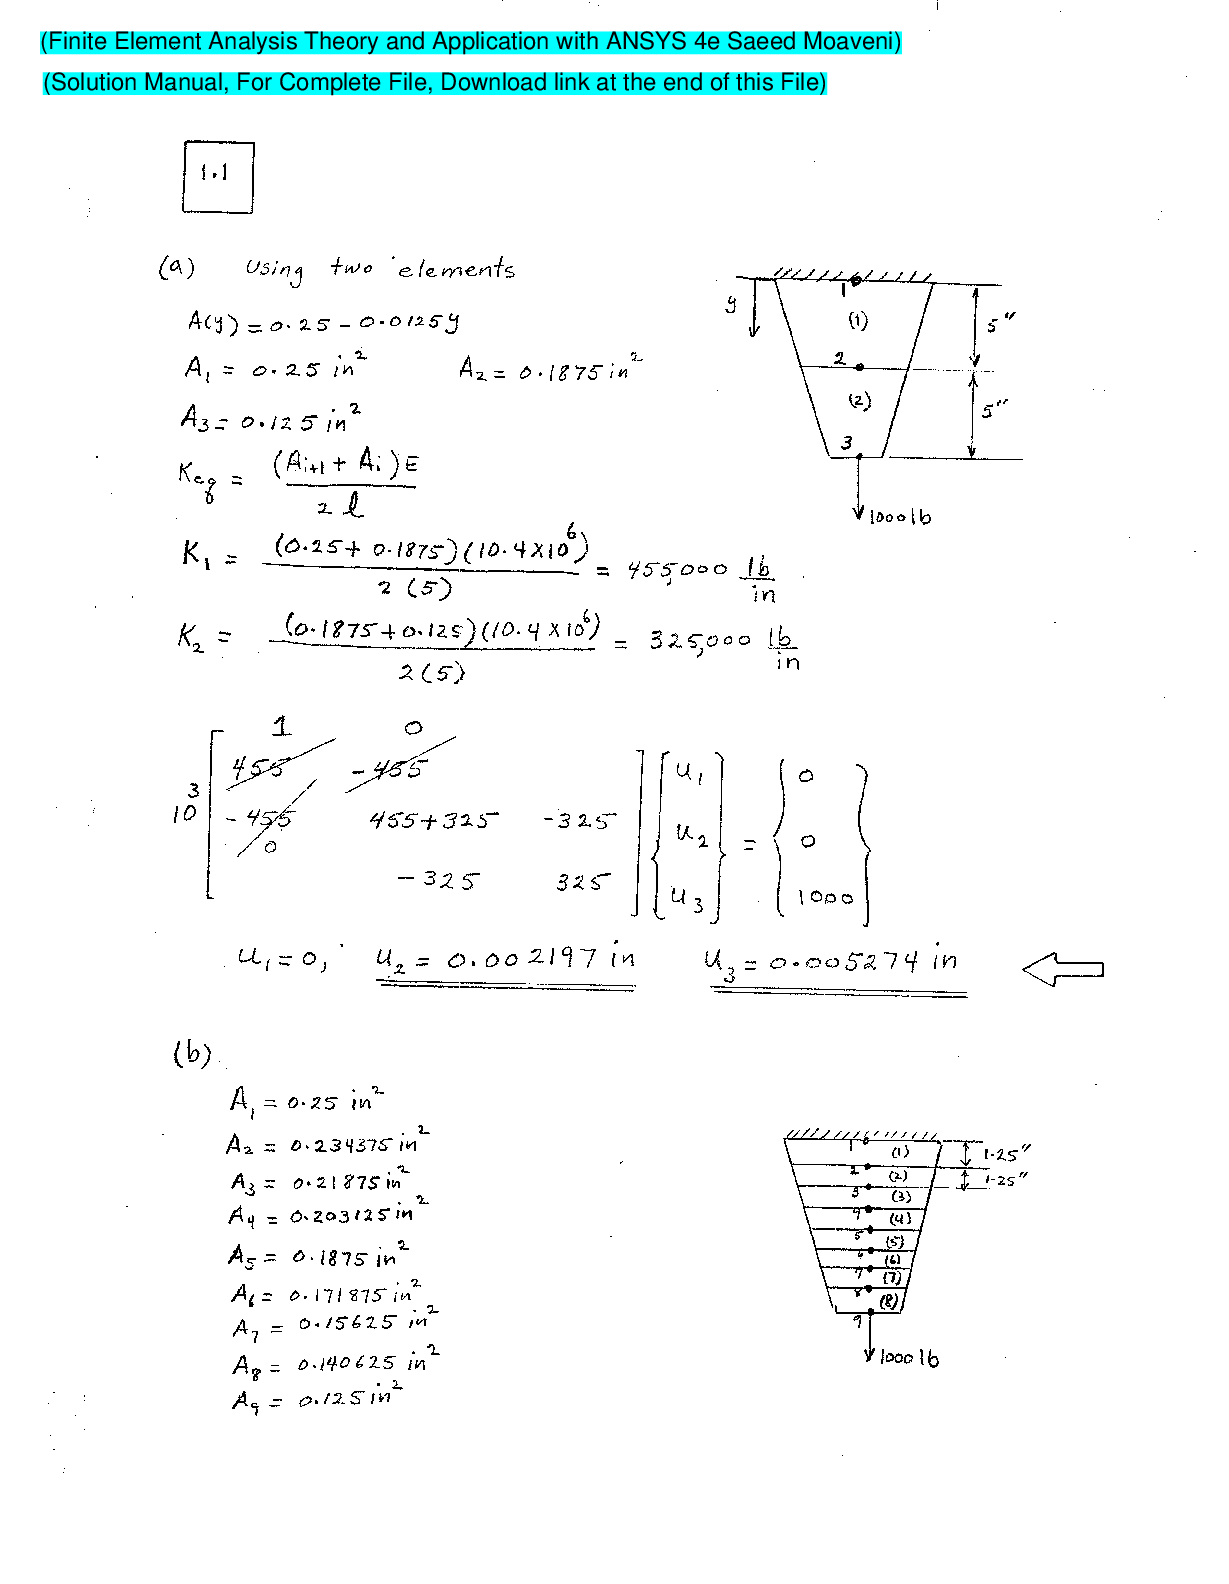 (Finite Element Analysis Theory and Application with ANSYS 4e Saeed Moaveni)
(Solution Manual, For Complete File, Download link at the end of this File)
1.1
(a) Using two elements
A(y) = 0.25 - 0.0125y
A₁ = 0.25 in² A₂ = 0.1875 in²
A₃ = 0.125 in²
Keq = (Ai+1 + Ai)E / 2l
K₁ = (0.25 + 0.1875)(10.4 X10⁶) / 2(5) = 455,000 lb/in
K₂ = (0.1875 + 0.125)(10.4 X10⁶) / 2(5) = 325,000 lb/in
y
1
(1)
5"
2
(2)
5"
3
1000 lb
1 0
455 -455
10³ -455 455+325 -325
0
-325 325
u₁
u₂
u₃
=
0
0
1000
u₁ = 0, u₂ = 0.002197 in u₃ = 0.005274 in
(b)
A₁ = 0.25 in²
A₂ = 0.234375 in²
A₃ = 0.21875 in²
A₄ = 0.203125 in²
A₅ = 0.1875 in²
A₆ = 0.171875 in²
A₇ = 0.15625 in²
A₈ = 0.140625 in²
A₉ = 0.125 in²
1 (1) 1.25"
2 (2) 1.25"
3 (3)
4 (4)
5 (5)
6 (6)
7 (7)
8 (8)
9
1000 lb